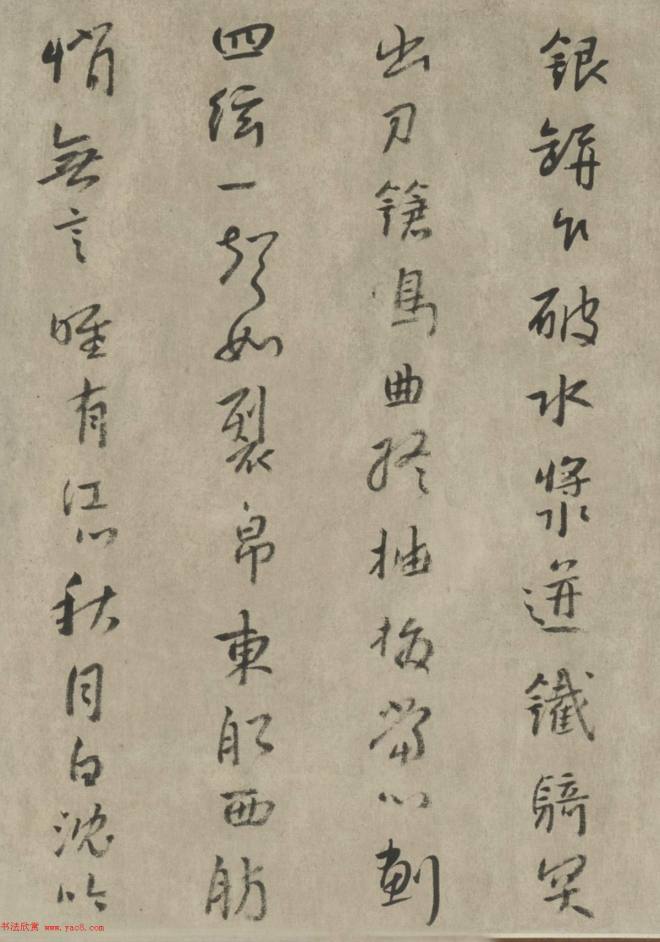 銀缾乍破水漿迸鐵騎突
出刀鎗鳴曲終抽撥當心劃
四絃一聲如裂帛東船西舫
悄無言唯有江心秋月白沈吟
书法欣赏 www.yac8.com